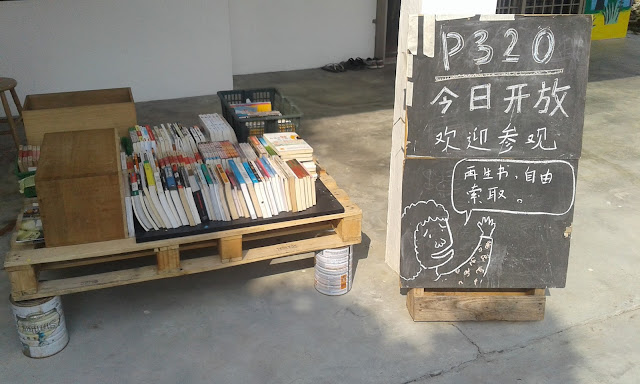 P320
今日开放
欢迎参观
再生书,自由
索取。